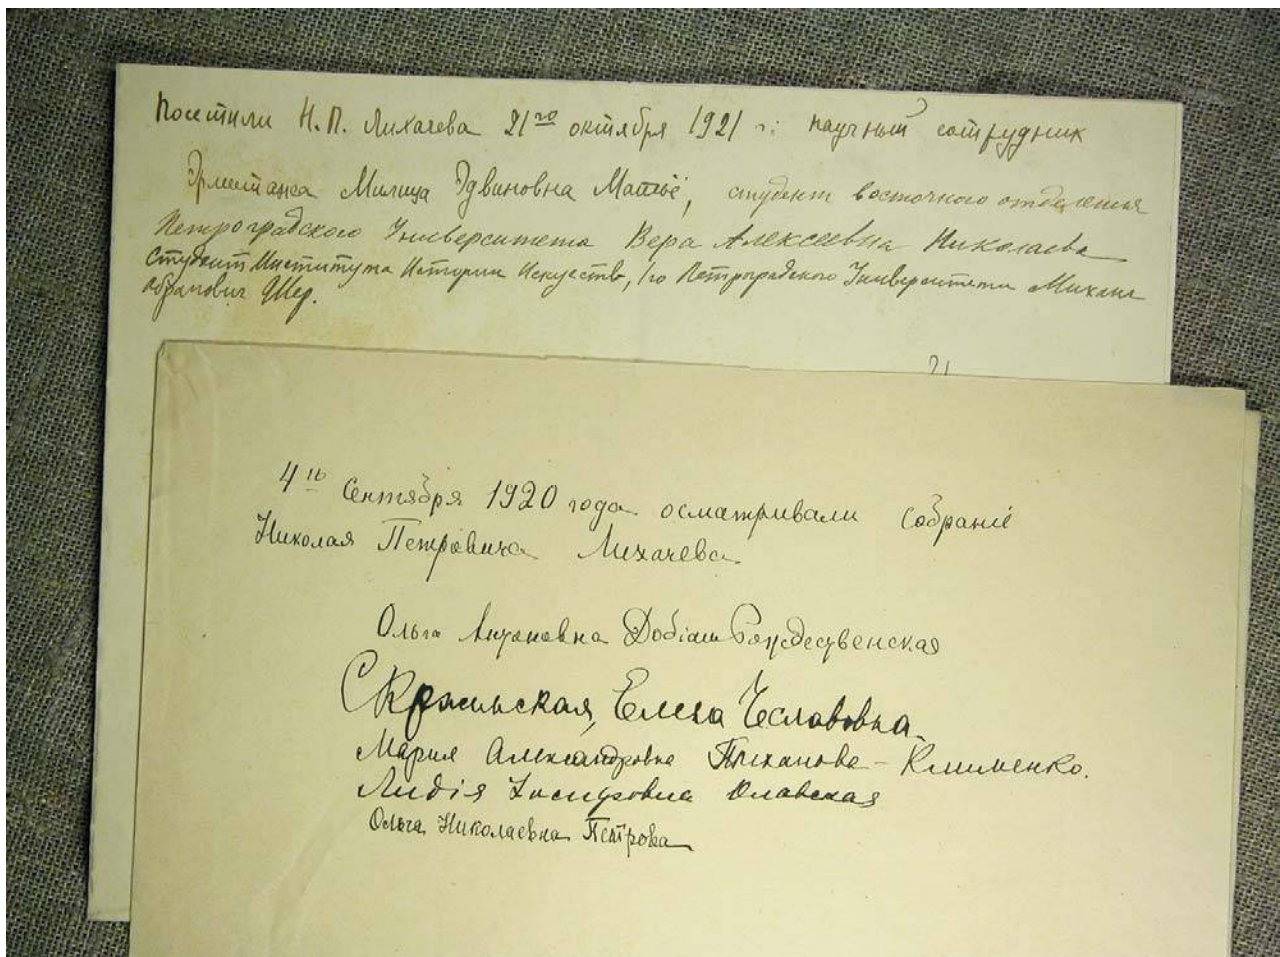 Посетили Н. П. Лихачева 21го октября 1921 г: научный сотрудник
Эрмитажа Милица Эдвиновна Матьё, студент восточного отделения
Петроградского Университета Вера Алексеевна Николаева
Студент Института Истории Искусств, 1го Петроградского Университета Михаил
Абрамович Шер.
21
4го Сентября 1920 года осматривали собраніе
Николая Петровича Лихачева
Ольга Антоновна Добіаш Рождественская
Скржинская, Елена Чеславовна
Мария Александровна Тиханова-Клименко.
Лидія Иосифовна Олавская
Ольга Николаевна Петрова